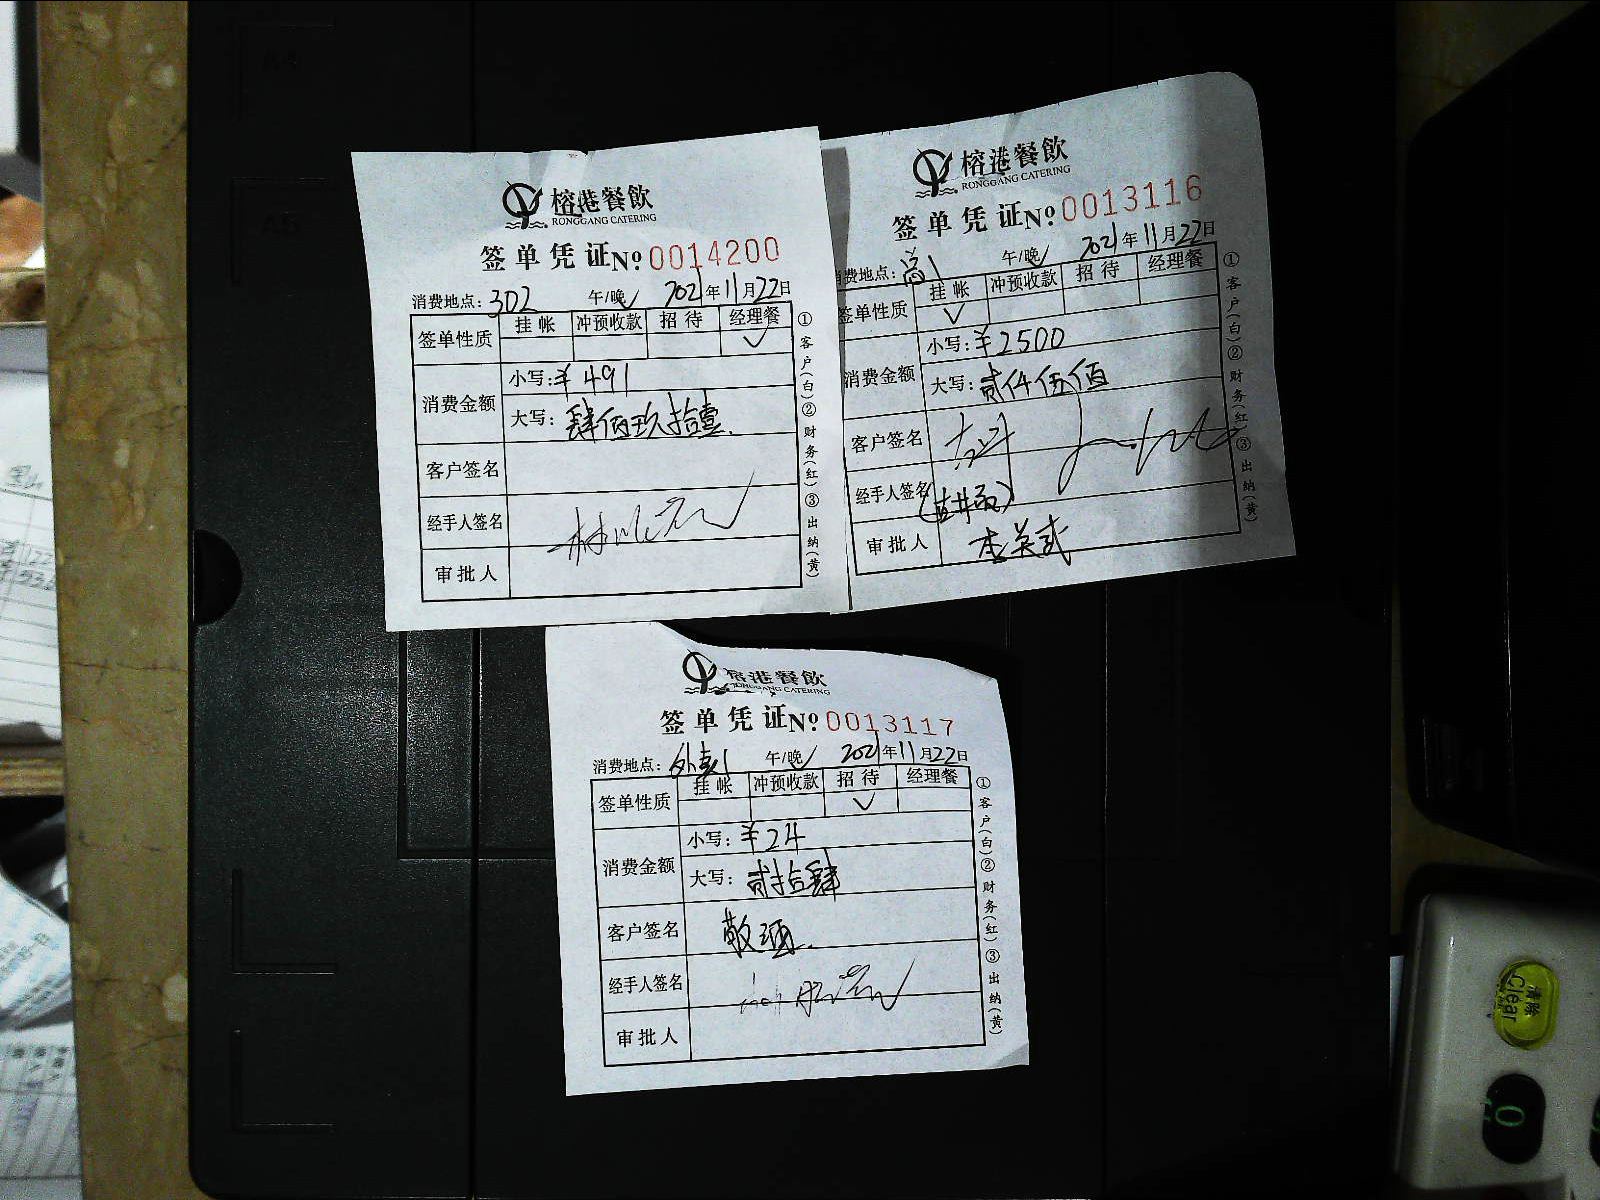 榕港餐飲
RONGGANG CATERING
签单凭证 № 0014200
消费地点: 302 午/晚✓ 2021年11月22日
签单性质 挂帐 冲预收款 招待 经理餐 ✓
消费金额 小写: ¥491
大写: 肆佰玖拾壹
客户签名
经手人签名
审批人
①客户(白)②财务(红)③出纳(黄)
榕港餐飲
RONGGANG CATERING
签单凭证 № 0013116
消费地点: 午/晚✓ 2021年11月22日
签单性质 挂帐 ✓ 冲预收款 招待 经理餐
消费金额 小写: ¥2500
大写: 贰仟伍佰
客户签名
经手人签名
审批人
①客户(白)②财务(红)③出纳(黄)
榕港餐飲
RONGGANG CATERING
签单凭证 № 0013117
消费地点: 外卖1 午/晚✓ 2021年11月22日
签单性质 挂帐 冲预收款 招待 ✓ 经理餐
消费金额 小写: ¥24
大写: 贰拾肆
客户签名 敬酒
经手人签名
审批人
①客户(白)②财务(红)③出纳(黄)
清除
Clear
0